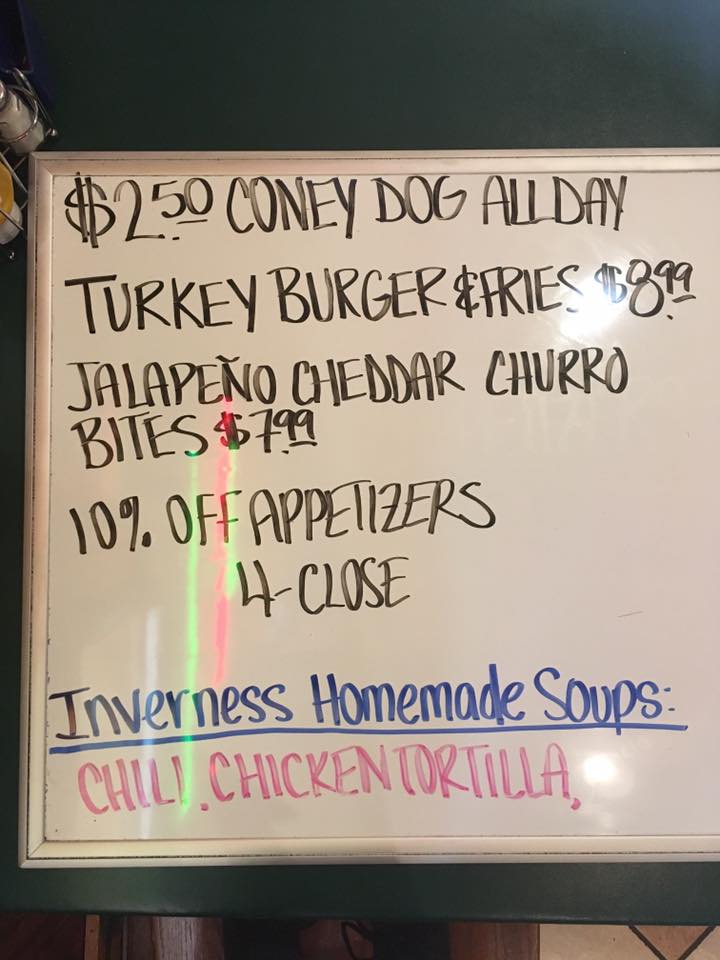 $2.50 CONEY DOG ALL DAY
TURKEY BURGER & FRIES $8.99
JALAPEÑO CHEDDAR CHURRO
BITES $7.99
10% OFF APPETIZERS
4-CLOSE
Inverness Homemade Soups:
CHILI, CHICKEN TORTILLA,